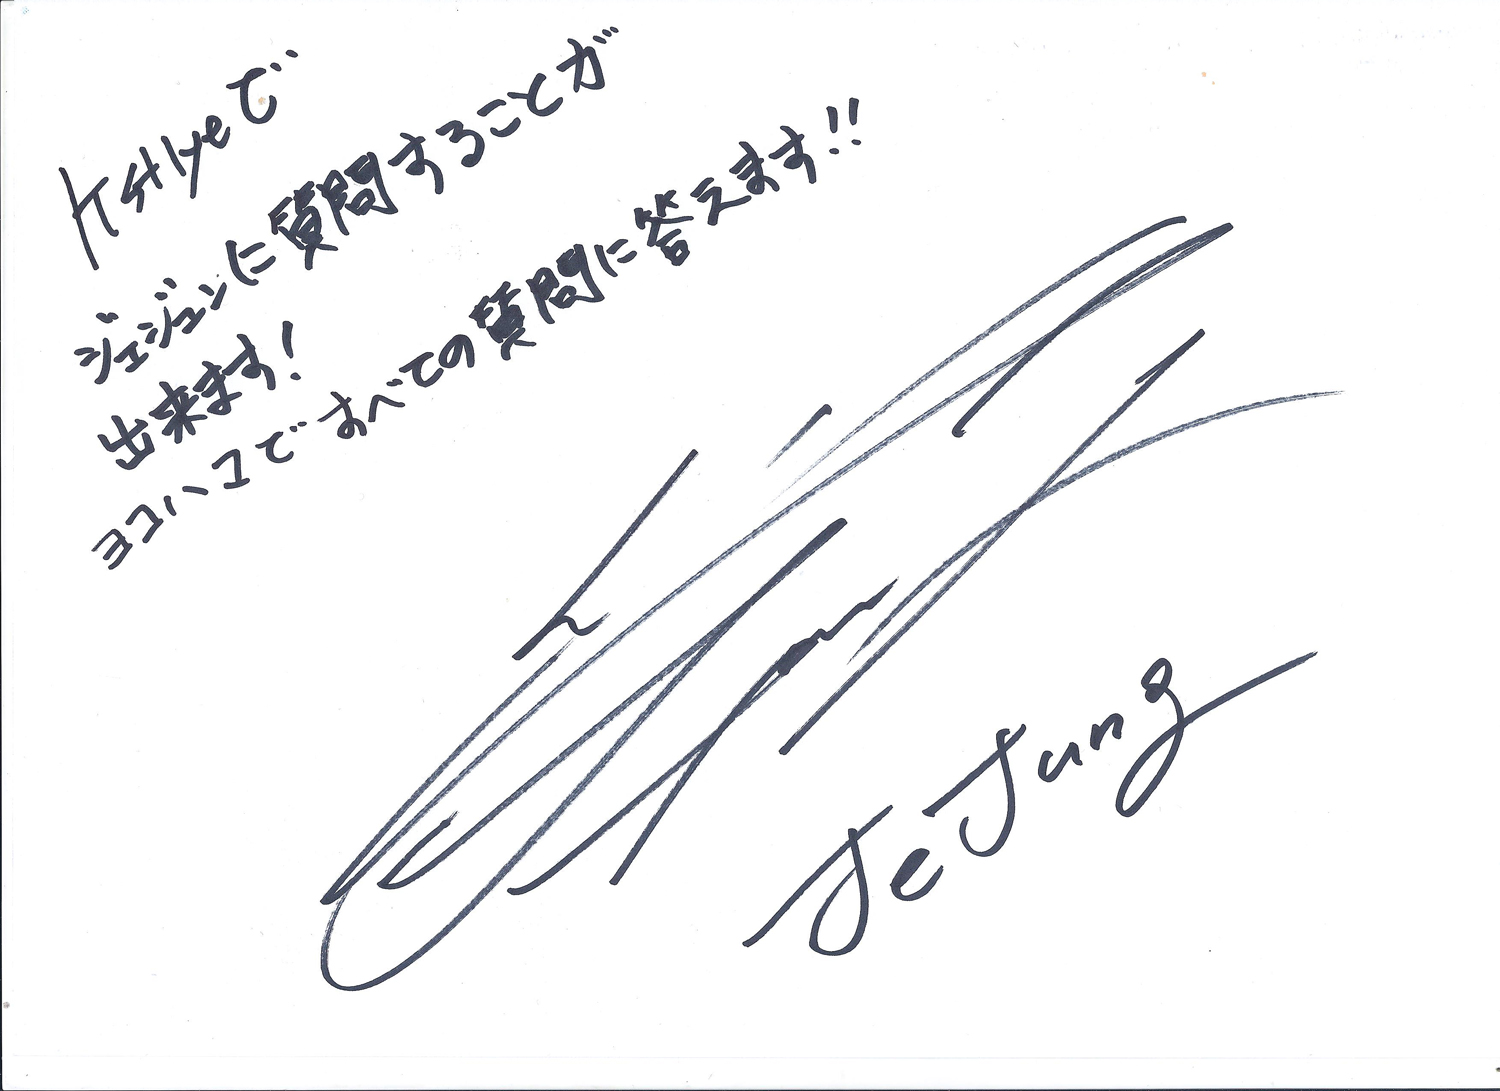 Kstlyeで
ジェジュンに質問することが
出来ます!
ヨコハマですべての質問に答えます!!
JeJung